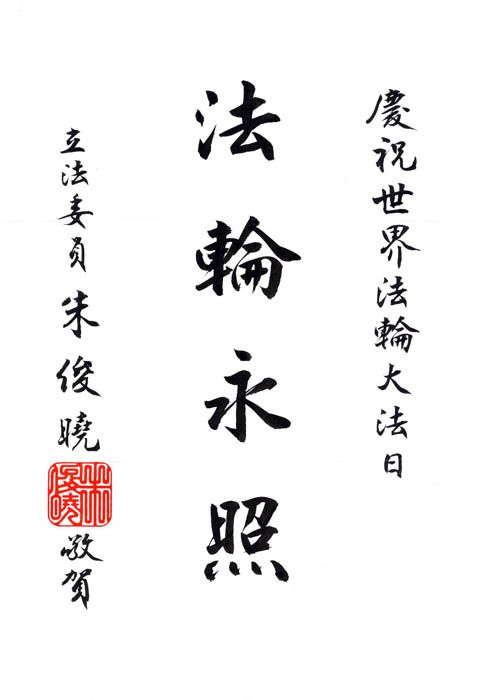 慶祝世界法輪大法日
法輪永照
立法委員 朱俊曉 敬賀
朱俊曉